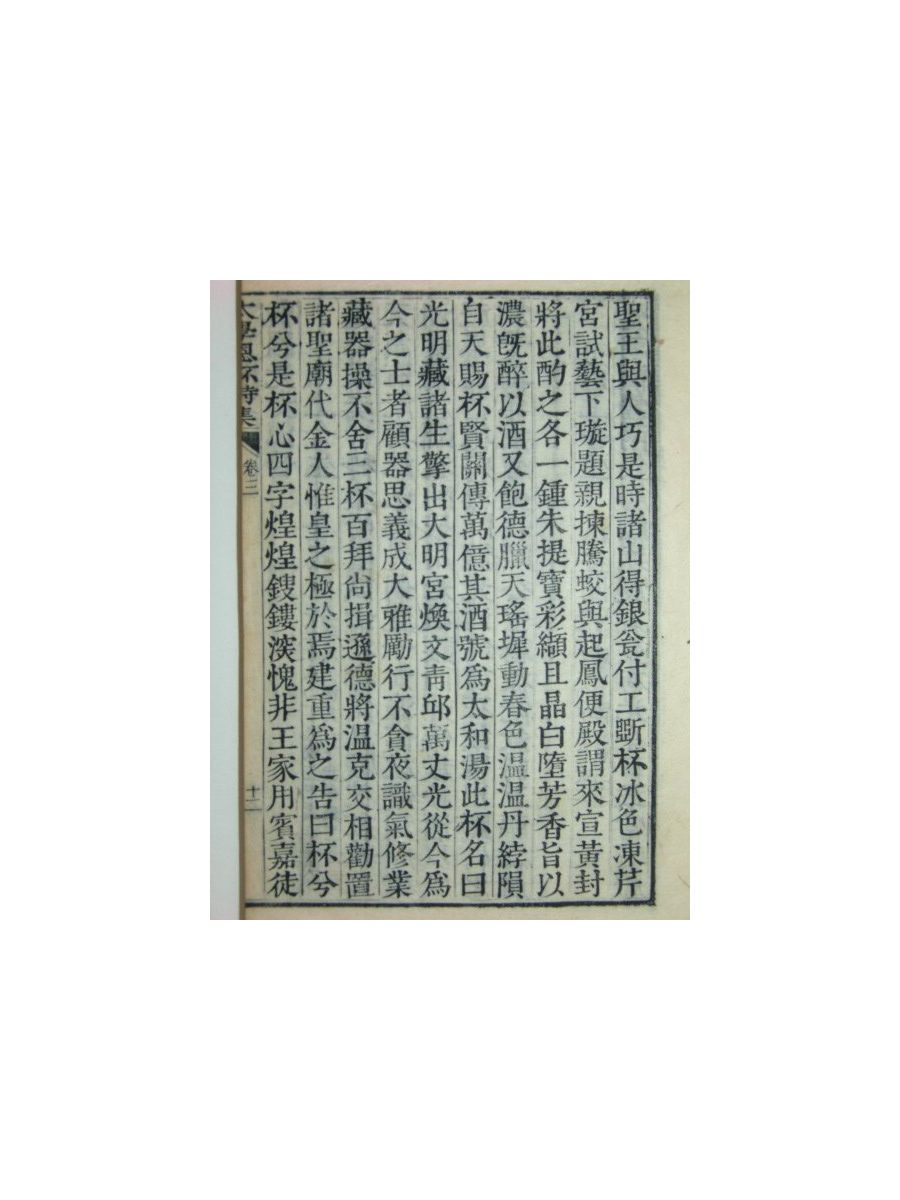 聖王與人巧是時諸山得銀瓮付工斲杯冰色凍芹
宮試藝下璇題親揀騰蛟與起鳳便殿謂來宣黃封
將此酌之各一鍾朱提寶彩纈且晶白墮芳香旨以
濃旣醉以酒又飽德臘天瑤墀動春色温温丹綍隕
自天賜杯賢關傳萬億其酒號爲太和湯此杯名曰
光明藏諸生擎出大明宮煥文靑邱萬丈光從今爲
今之士者顧器思義成大雅勵行不貪夜識氣修業
藏器操不舍三杯百拜尙揖遜德將温克交相勸置
諸聖廟代金人惟皇之極於焉建重爲之告曰杯兮
杯兮是杯心四字煌煌鎪鏤深愧非王家用賓嘉徒
太學恩杯詩集 卷三 十二